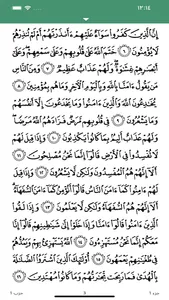 ١٣:١٤
إِنَّ ٱلَّذِينَ كَفَرُوا۟ سَوَآءٌ عَلَيْهِمْ ءَأَنذَرْتَهُمْ أَمْ لَمْ تُنذِرْهُمْ
لَا يُؤْمِنُونَ ٦ خَتَمَ ٱللَّهُ عَلَىٰ قُلُوبِهِمْ وَعَلَىٰ سَمْعِهِمْ وَعَلَىٰٓ
أَبْصَٰرِهِمْ غِشَٰوَةٌ وَلَهُمْ عَذَابٌ عَظِيمٌ ٧ وَمِنَ ٱلنَّاسِ
مَن يَقُولُ ءَامَنَّا بِٱللَّهِ وَبِٱلْيَوْمِ ٱلْءَاخِرِ وَمَا هُم بِمُؤْمِنِينَ ٨
يُخَٰدِعُونَ ٱللَّهَ وَٱلَّذِينَ ءَامَنُوا۟ وَمَا يَخْدَعُونَ إِلَّآ أَنفُسَهُمْ
وَمَا يَشْعُرُونَ ٩ فِى قُلُوبِهِم مَّرَضٌ فَزَادَهُمُ ٱللَّهُ مَرَضًا
وَلَهُمْ عَذَابٌ أَلِيمٌۢ بِمَا كَانُوا۟ يَكْذِبُونَ ١٠ وَإِذَا قِيلَ لَهُمْ
لَا تُفْسِدُوا۟ فِى ٱلْأَرْضِ قَالُوٓا۟ إِنَّمَا نَحْنُ مُصْلِحُونَ ١١
أَلَآ إِنَّهُمْ هُمُ ٱلْمُفْسِدُونَ وَلَٰكِن لَّا يَشْعُرُونَ ١٢ وَإِذَا قِيلَ
لَهُمْ ءَامِنُوا۟ كَمَآ ءَامَنَ ٱلنَّاسُ قَالُوٓا۟ أَنُؤْمِنُ كَمَآ ءَامَنَ ٱلسُّفَهَآءُ
أَلَآ إِنَّهُمْ هُمُ ٱلسُّفَهَآءُ وَلَٰكِن لَّا يَعْلَمُونَ ١٣ وَإِذَا لَقُوا۟
ٱلَّذِينَ ءَامَنُوا۟ قَالُوٓا۟ ءَامَنَّا وَإِذَا خَلَوْا۟ إِلَىٰ شَيَٰطِينِهِمْ قَالُوٓا۟ إِنَّا
مَعَكُمْ إِنَّمَا نَحْنُ مُسْتَهْزِءُونَ ١٤ ٱللَّهُ يَسْتَهْزِئُ بِهِمْ وَيَمُدُّهُمْ
فِى طُغْيَٰنِهِمْ يَعْمَهُونَ ١٥ أُو۟لَٰٓئِكَ ٱلَّذِينَ ٱشْتَرَوُا۟ ٱلضَّلَٰلَةَ
بِٱلْهُدَىٰ فَمَا رَبِحَت تِّجَٰرَتُهُمْ وَمَا كَانُوا۟ مُهْتَدِينَ ١٦
جزء ١ ٣ حزب ١